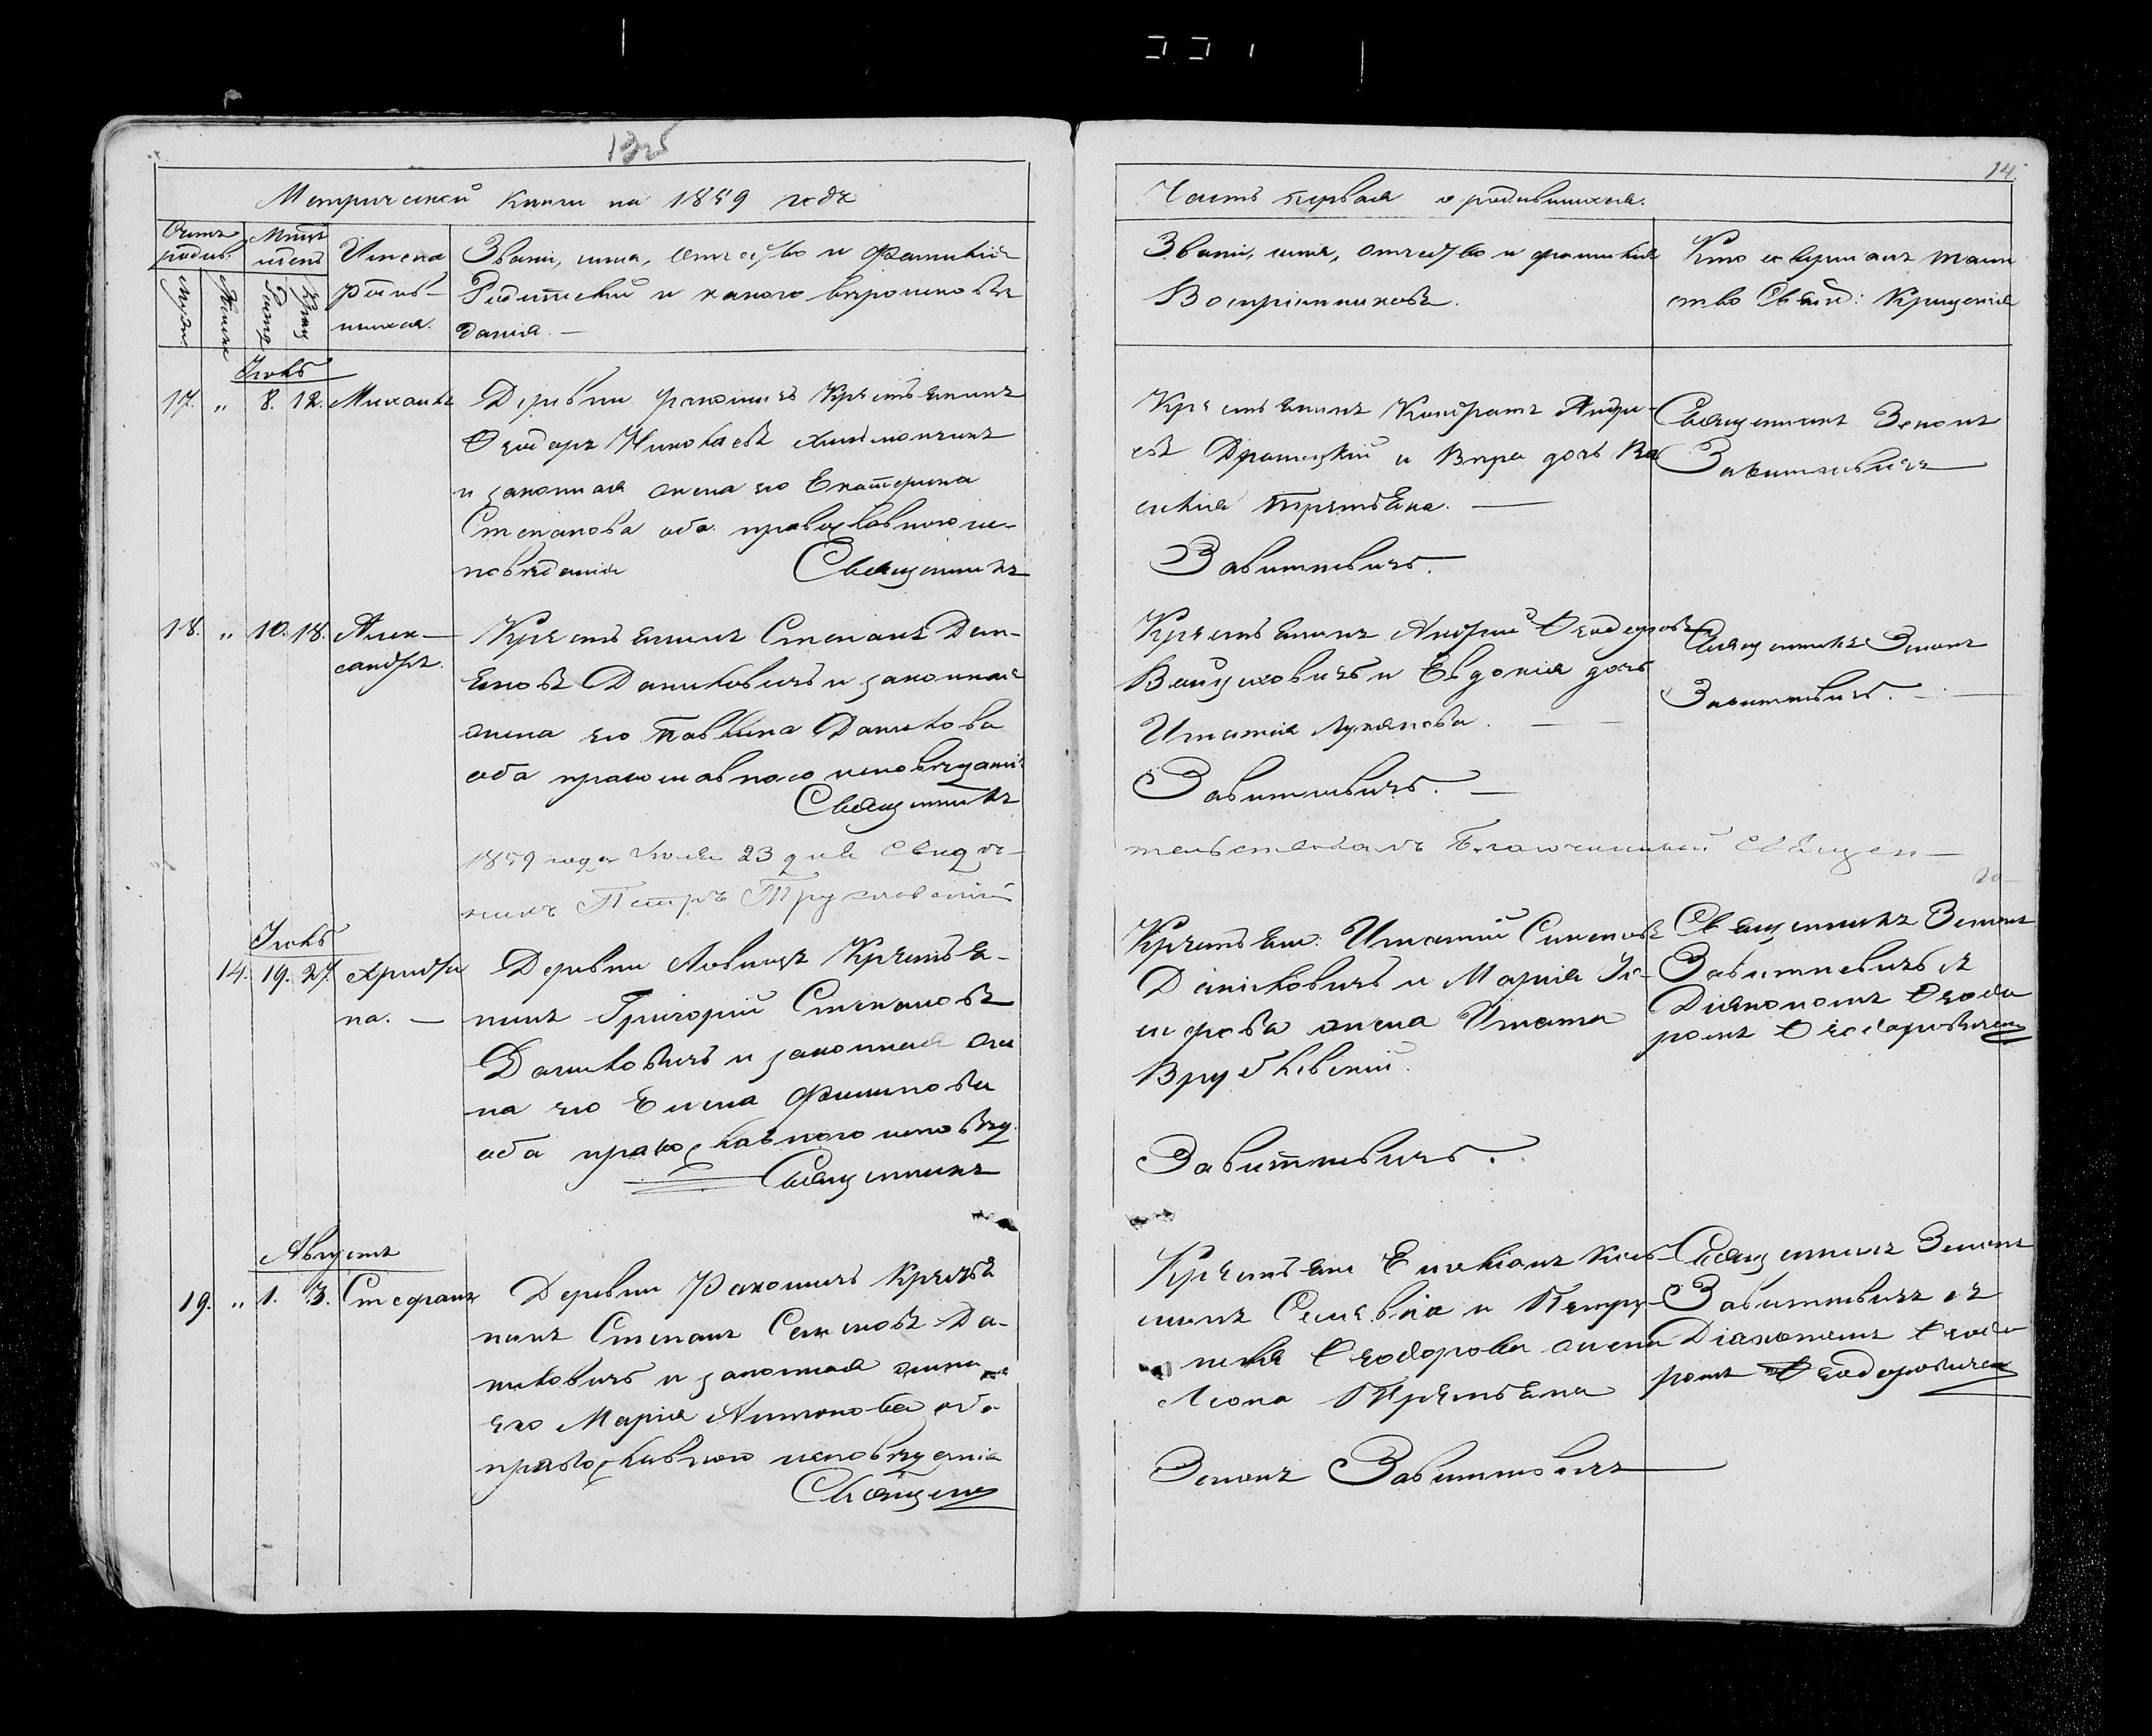 125
14.
Метрической книги на 1859 годъ
Часть первая о родившихся.
Счетъ родив.
Мужск
Женск
Мѣсяцъ и день
Рожд
Крещ
Имена
родив-
шихся.
Званіе, имя, отчество и Фамилія
Родителей и какого вѣроисповѣ
данія. —
Званіе, имя, отчество и фамилія
Воспріемниковъ.
Кто совершалъ таин
ство Свят: Крещенія
Іюль
17. „ 8. 12. Михаилъ
Деревни Факошичъ Крестьянинъ
Ѳеодоръ Николаевъ
и законная жена его Екатерина
Степанова оба православного ис-
повѣданія Священникъ
Крестьянинъ Кондратъ Андре-
евъ и Вѣра дочь Ва
силія
Завитневичъ.
Священникъ Зенонъ
Завитневичъ
18. „ 10. 18. Алек-
сандръ.
Крестьянинъ Степанъ Дем-
яновъ Даниловичъ и законная
жена его Павлина Данилова
оба православного исповѣданія
Священникъ
Крестьянинъ Андрей Ѳеодоровъ
Войцеховичъ и Евдокія дочь
Игнатія Лукянова.
Завитневичъ. —
Священникъ Зенонъ
Завитневичъ. —
1859 года Іюля 23 дня Свидѣ-
тельствовалъ Благочинный Священ-
никъ Петръ
Іюль
14. 19. 27. Христи
на. —
Деревни Крестья-
нинъ Григорій Степановъ
Даниловичъ и законная же
на его Елена Филипова
оба православного исповѣд.
Священникъ
Крестьян. Игнатій Симеоновъ
Даниловичъ и Марія
жена Игната
Врублевскій.
Завитневичъ.
Священникъ Зенонъ
Завитневичъ съ
Діакономъ Ѳеодо
ромъ Ѳеодоровичем
Августъ
19. „ 1. 3. Стефанъ
Деревни Факошичъ Крестья
нинъ Степанъ Семеновъ Да-
ниловичъ и законная жена
его Марія Антонова оба
православного исповѣданія
Священ
Крестьян Емеліанъ
и Петру-
нела Ѳеодорова жена
Леона
Зенонъ Завитневичъ
Священникъ Зенонъ
Завитневичъ съ
Діакономъ Ѳеодо
ромъ Ѳеодоровичем